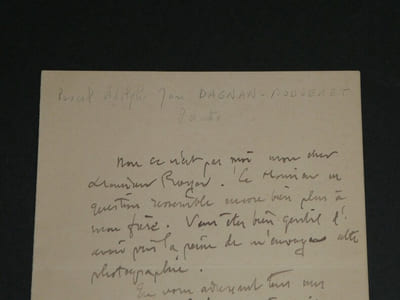 Pascal Adolphe Jean DAGNAN-BOUVERET
Non ce n'est pas moi mon cher
Monsieur . Ce Monsieur en
question ressemble encore bien plus à
mon frère. Vous êtes bien gentil d'
avoir pris la peine de m'envoyer cette
photographie.
En vous adressant tous mes